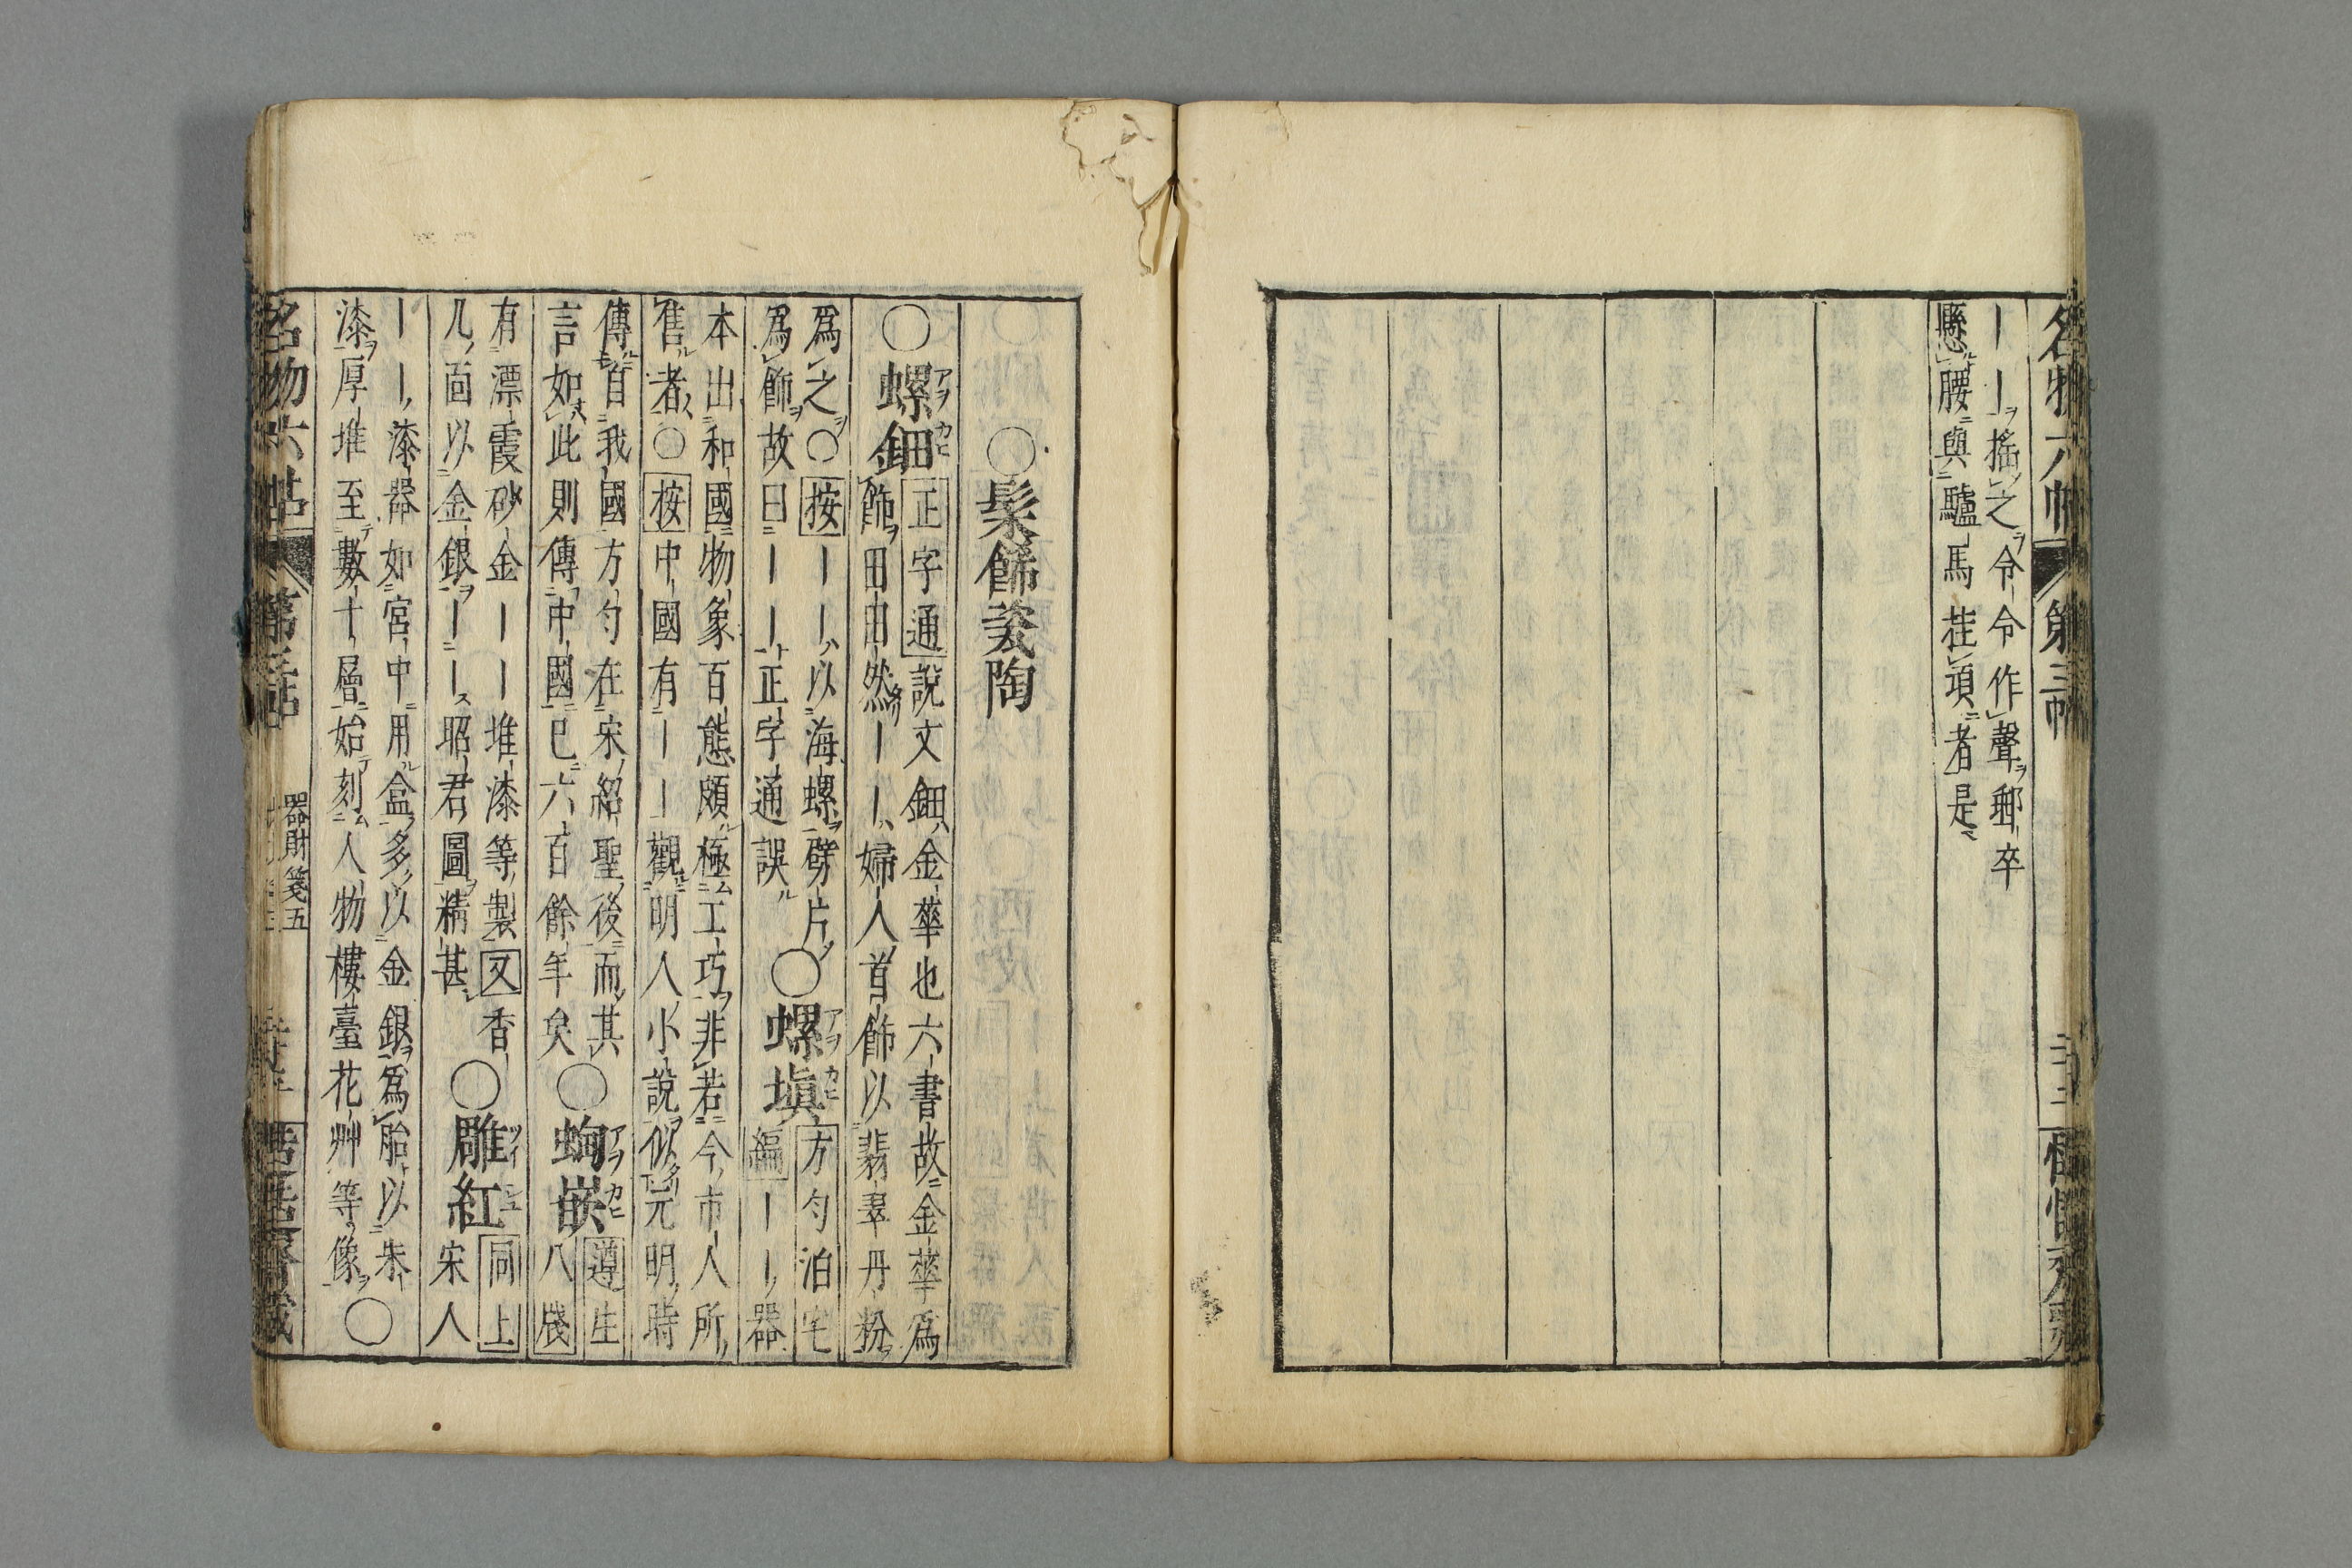 名物六帖 第三帖
——搖之令令作聲郵卒
懸腰與驢馬挂項者是
○髹飾瓷陶
○螺鈿 正字通說文鈿金華也六書故金華爲
飾田田然——婦人首飾以翡翠丹粉
爲之○按——以海螺劈片
爲飾故曰——正字通誤
○螺塡 方勺泊宅
編——器
本出和國物象百態頗極工巧非若今市人所
售者○按中國有——觀明人小說似元明時
傳自我國方勺在宋紹聖後而其
言如此則傳中國已六百餘年矣
○蜔嵌 遵生
八牋
有漂霞砂金——堆漆等製又香
几面以金銀——昭君圖精甚
○雕紅 同上
宋人
——漆器如宮中用盒多以金銀爲胎以朱
漆厚堆至數十層始刻人物樓臺花艸等像○
名物六帖 第三帖 器財箋五